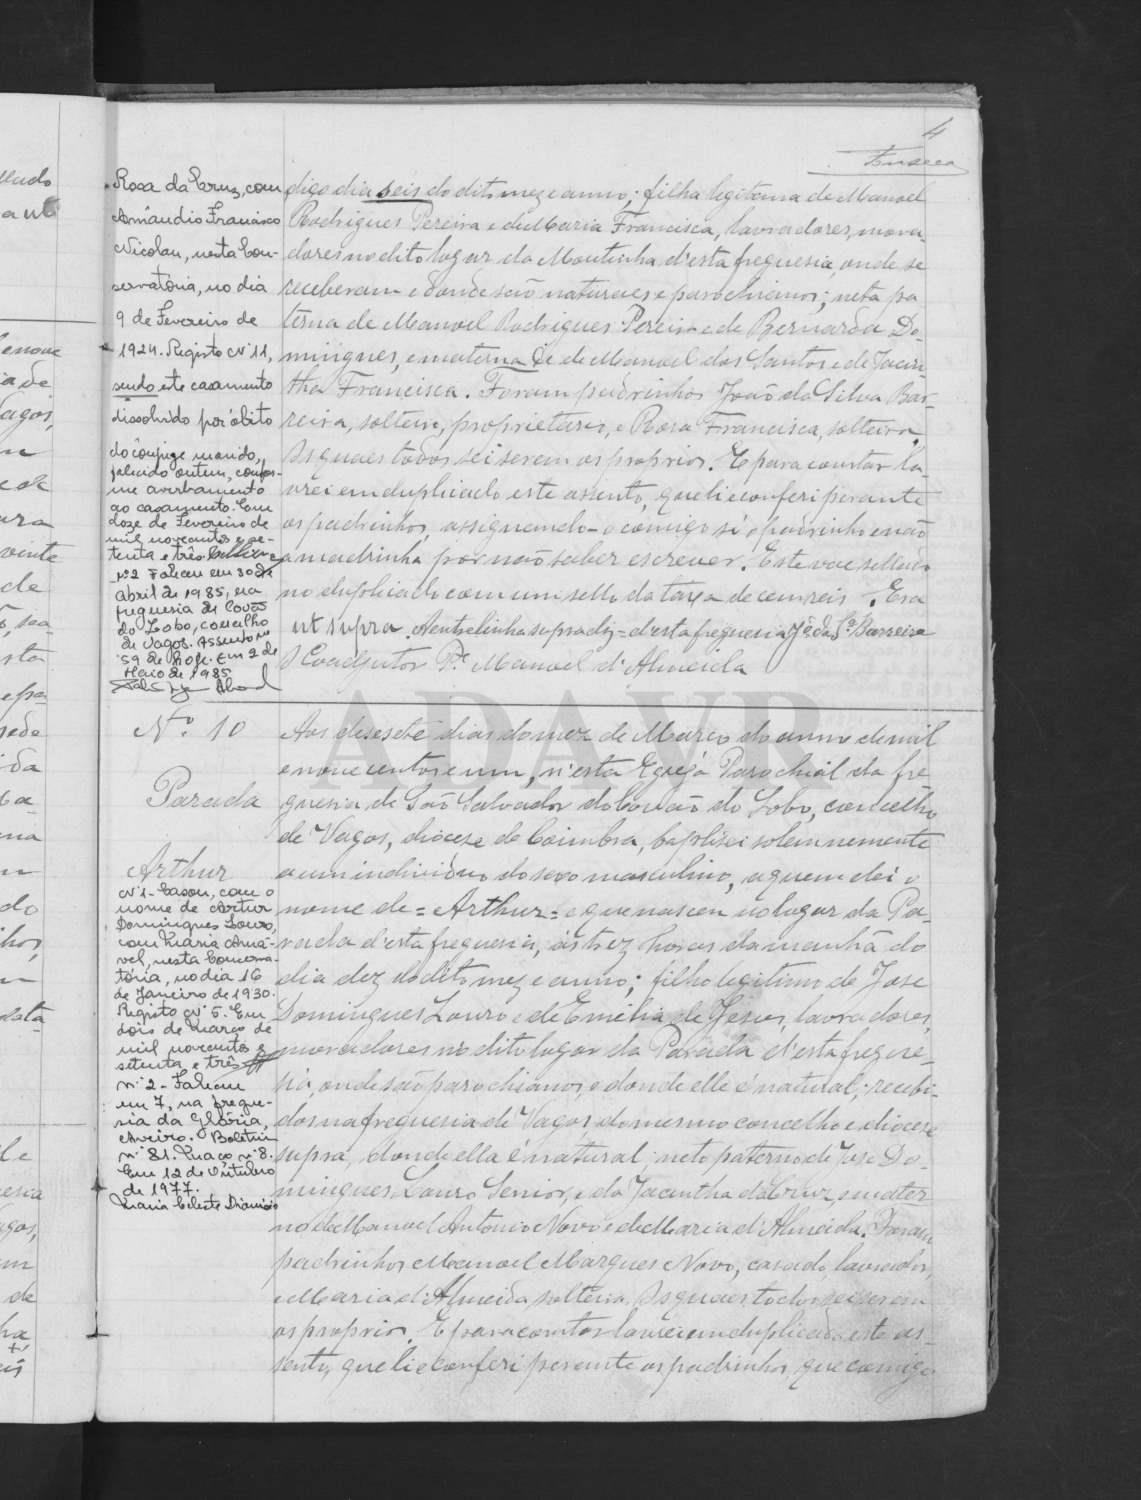 4
Fonseca
Rosa da Cruz, com
Amândio Francisco
Nicolau, nesta Con-
servatória, no dia
9 de Fevereiro de
1924. Registo Nº 11,
sendo este casamento
dissolvido por óbito
do cônjuge marido,
falecido ontem, confor-
me averbamento
ao casamento. Em
doze de Fevereiro de
mil novecentos e se-
tenta e três.
Nº 2 Faleceu em 30 de
Abril de 1985, na
freguesia de Covão
do Lobo, concelho
de Vagos. Assento nº
59 de hoje. Em 2 de
Maio de 1985
digo dia seis do dito mez e anno; filha legitima de Manoel
Rodrigues Pereira e de Maria Francisca, lavradores, mora-
dores no dito logar da Moutinha d'esta freguesia, onde se
receberam e donde são naturaes e parochianos; neta pa
terna de Manoel Rodrigues Pereira e de Bernarda Do-
mingues, e materna de Manoel dos Santos e de Jacin
tha Francisca. Foram padrinhos João da Silva Bar-
reira, solteiro, proprietario, e Rosa Francisca, solteira,
os quaes todos sei serem os proprios. E para constar la-
vrei em duplicado este assento, que li e conferi perante
os padrinhos, assignando-o comigo só o padrinho e não
a madrinha por não saber escrever. Este vae sellado
no duplicado com um sello da taxa de cem reis. Era
ut supra. A entrelinha supra diz = d'esta freguesia Jº da Sª Barreira
O Coadjutor Pe. Manoel d'Almeida
ADAVR
Nº 10
Parada
Arthur
Nº 1 - Casou, com o
nome de Artur
Domingues Louro,
com Maria Amá-
vel, nesta Conserva-
tória, no dia 16
de Janeiro de 1930.
Registo Nº 5. Em
dois de Março de
mil novecentos e
setenta e três
nº 2 - Faleceu
em 7, na fregue-
sia da Glória,
Aveiro. Boletim
nº 81. Maço nº 8.
Em 12 de Outubro
de 1977.
Maria Celeste Dionísio
Aos desesete dias do mez de Março do anno de mil
e novecentos e um, n'esta Egreja Parochial da fre
guesia de São Salvador do Covão do Lobo, concelho
de Vagos, diocese de Coimbra, baptisei solemnemente
a um individuo do sexo masculino, a quem dei o
nome de = Arthur = e que nasceu no logar da Pa-
rada d'esta freguesia, ás trez horas da manhã do
dia dez do dito mez e anno; filho legitimo de Jose
Domingues Louro e de Emilia de Jesus, lavradores,
moradores no dito logar da Parada d'esta fregue-
sia, onde são parochianos, e donde elle é natural; recebi-
dos na freguesia de Vagos do mesmo concelho e diocese
supra, donde ella é natural; neto paterno de Jose Do-
mingues Louro Senior, e de Jacintha da Cruz, e mater
no de Manoel Antonio Novo e de Maria d'Almeida. Foram
padrinhos Manoel Marques Novo, casado, lavrador,
e Maria d'Almeida, solteira. Os quaes todos sei serem
os proprios. E para constar lavrei em duplicado este as-
sento, que li e conferi perante os padrinhos, que comigo